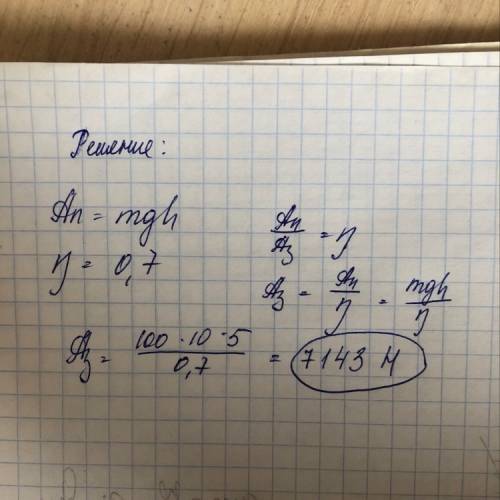 Решение:
Ап = mgh
η = 0,7
Ап/Аз = η
Аз = Ап/η = mgh/η
Аз = 100·10·5/0,7 = 7143 Н